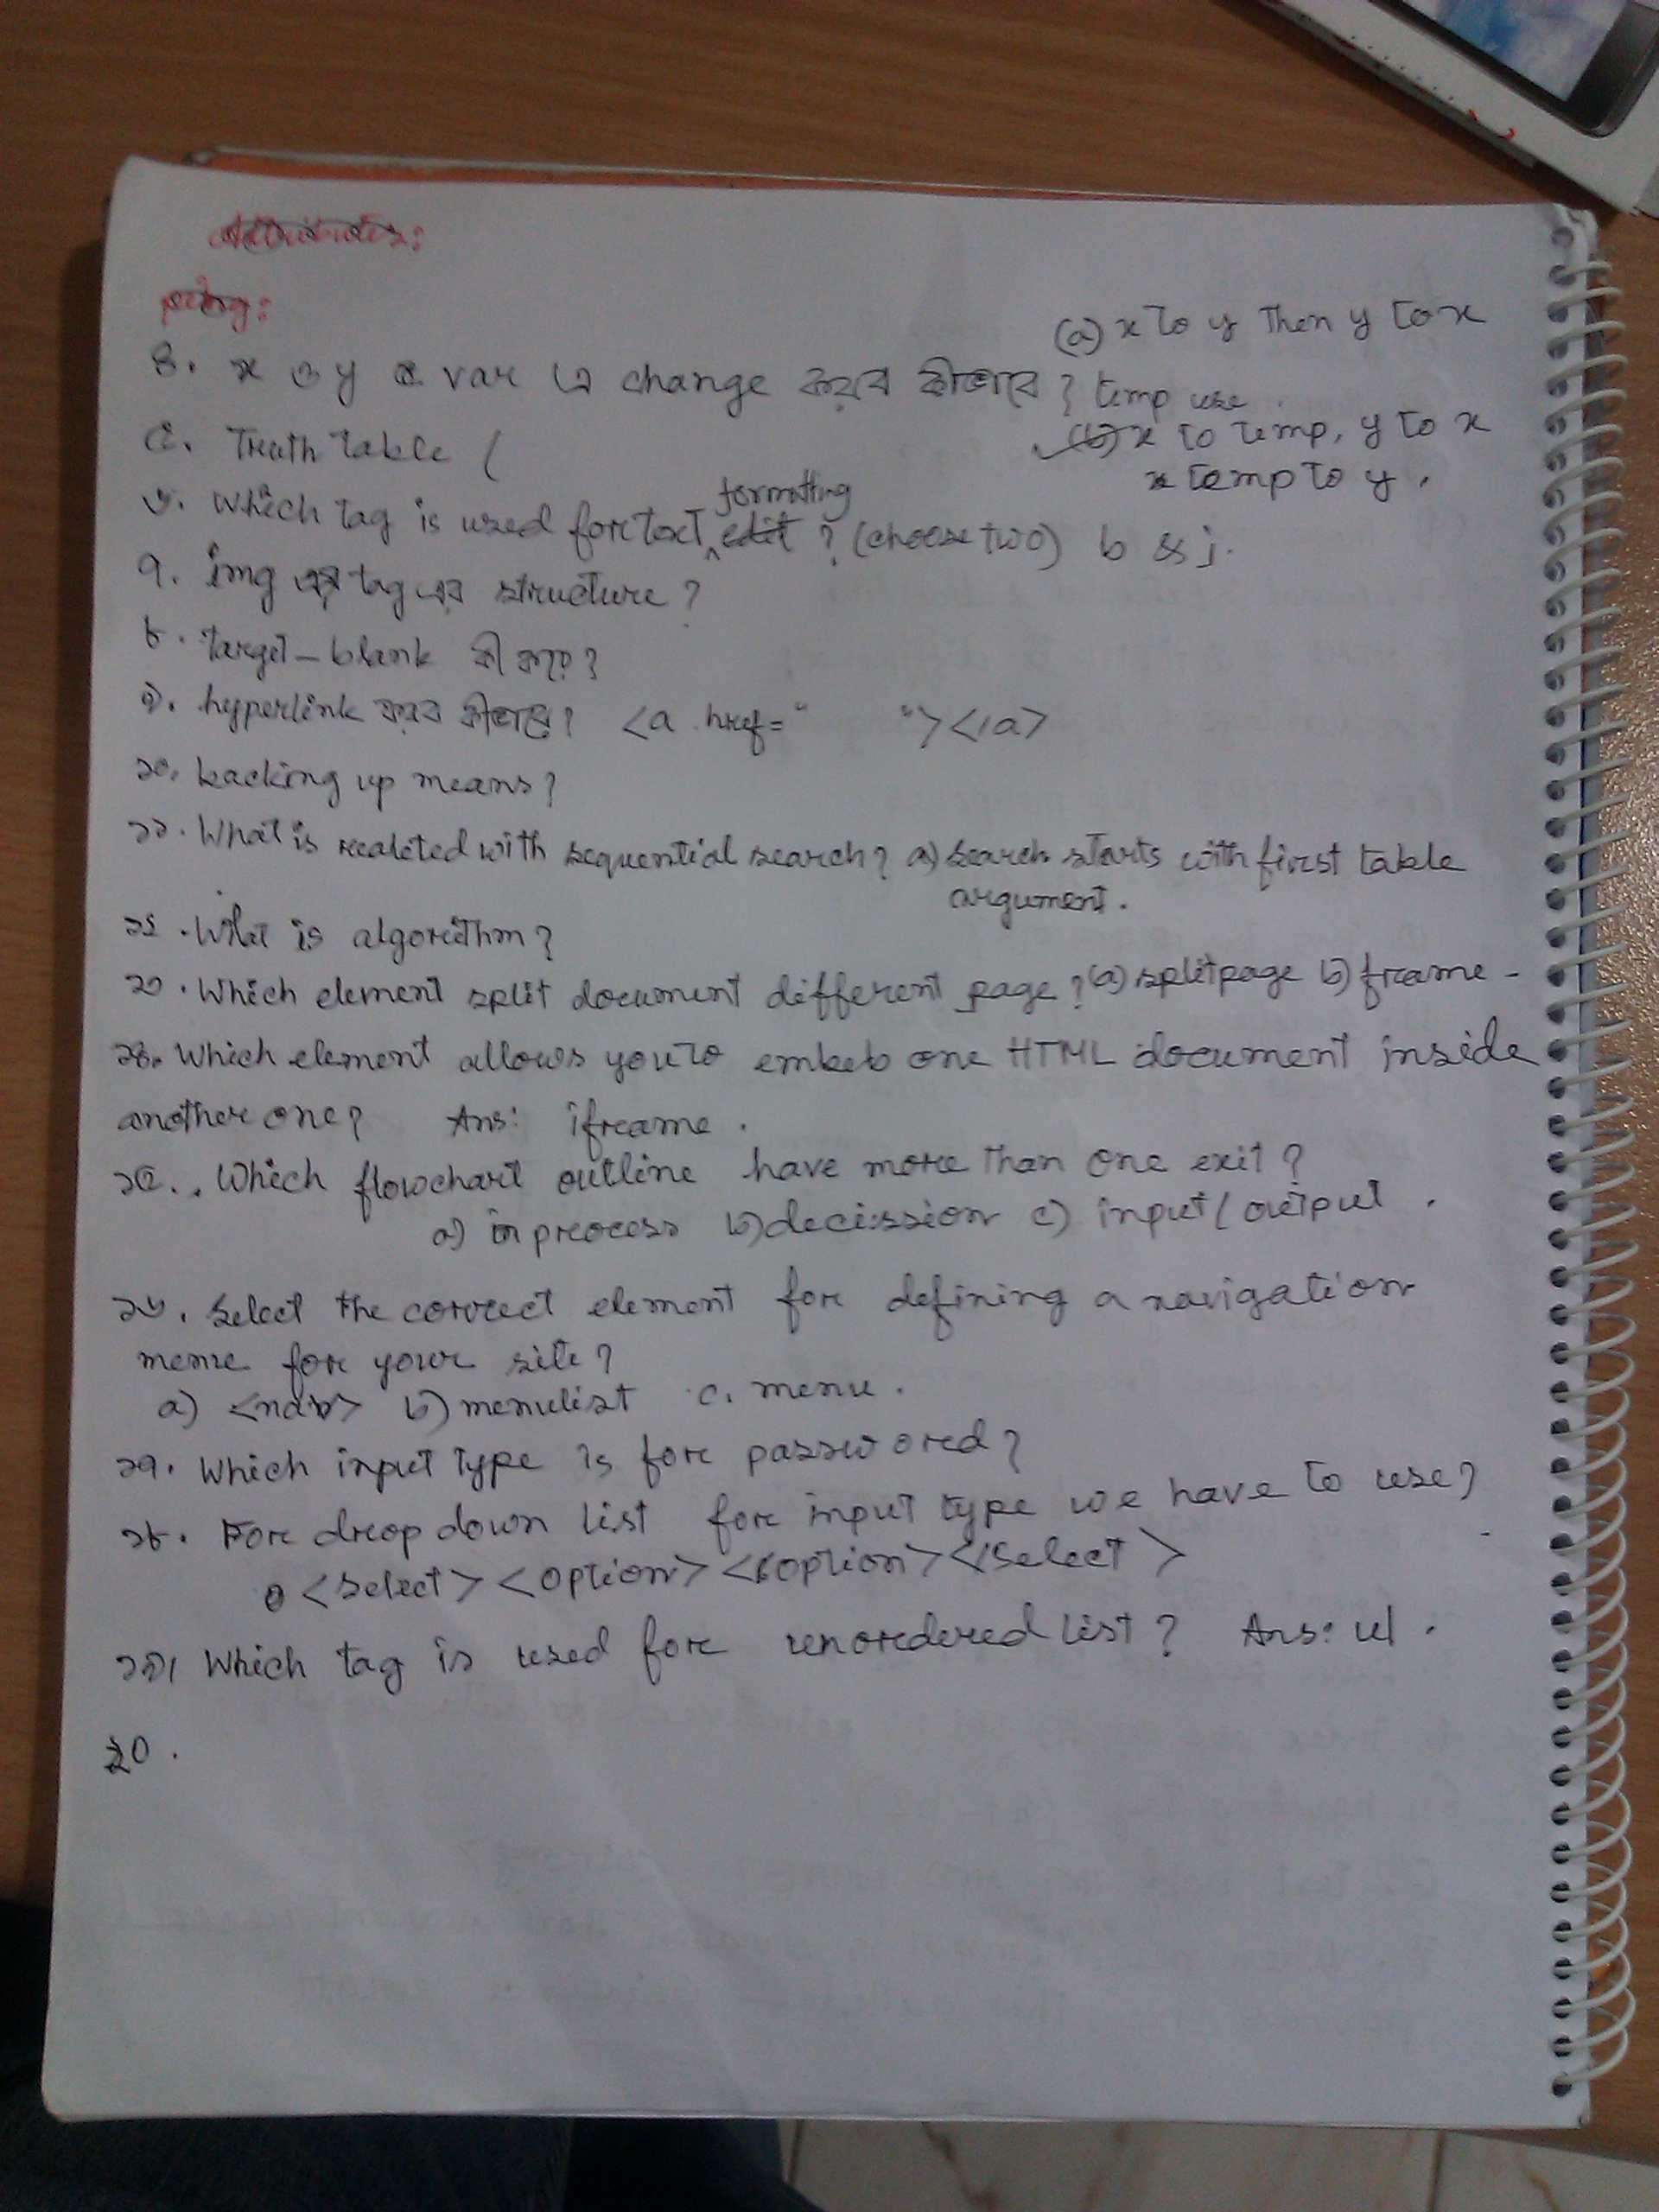 Attributes:
ping:
৪. x ও y কে var এ change করব কীভাবে? temp use.
(a) x to y then y to x
(b) x to temp, y to x
temp to y.
৫. Truth table (
৬. Which tag is used for text formatting edit ? (choose two) b & i.
৭. img এর tag এর structure?
৮. target_blank কী করে?
৯. hyperlink করব কীভাবে? <a href=" "></a>
১০. backing up means?
১১. What is realeted with sequential search? a) search starts with first table
argument.
১২. What is algorithm?
১৩. Which element split document different page? (a) splitpage b) frame -
১৪. Which element allows you to embeb one HTML document inside
another one? Ans: iframe.
১৫. Which flowchart outline have more than one exit?
a) in process b) decission c) input/output.
১৬. Select the correct element for defining a navigation
menu for your site?
a) <nav> b) menulist c. menu.
১৭. Which input type is for password?
১৮. For drop down list for input type we have to use?
<select><option></option></select>
১৯। Which tag is used for unordered list? Ans: ul.
20.